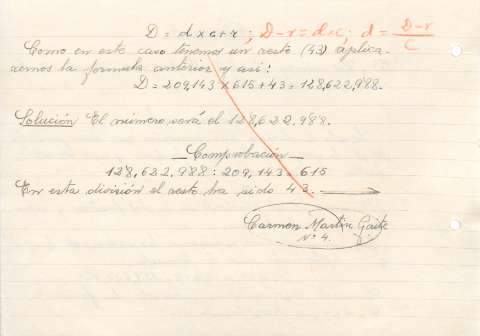 D = d x c + r ; D-r = d x c ; d = D-r / C
Como en este caso tenemos un resto (43) aplica-
remos la formula anterior y asi:
D = 209,143 x 615 + 43 = 128,622,988.
Solución El número será el 128,622.988.
Comprobación
128,622,988 : 209,143 = 615
En esta división el resto ha sido 43.
Carmen Martín Gaite
Nº 4.